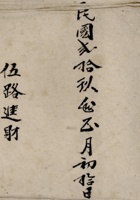 民國弍拾玖年五月初拾日
伍路進財